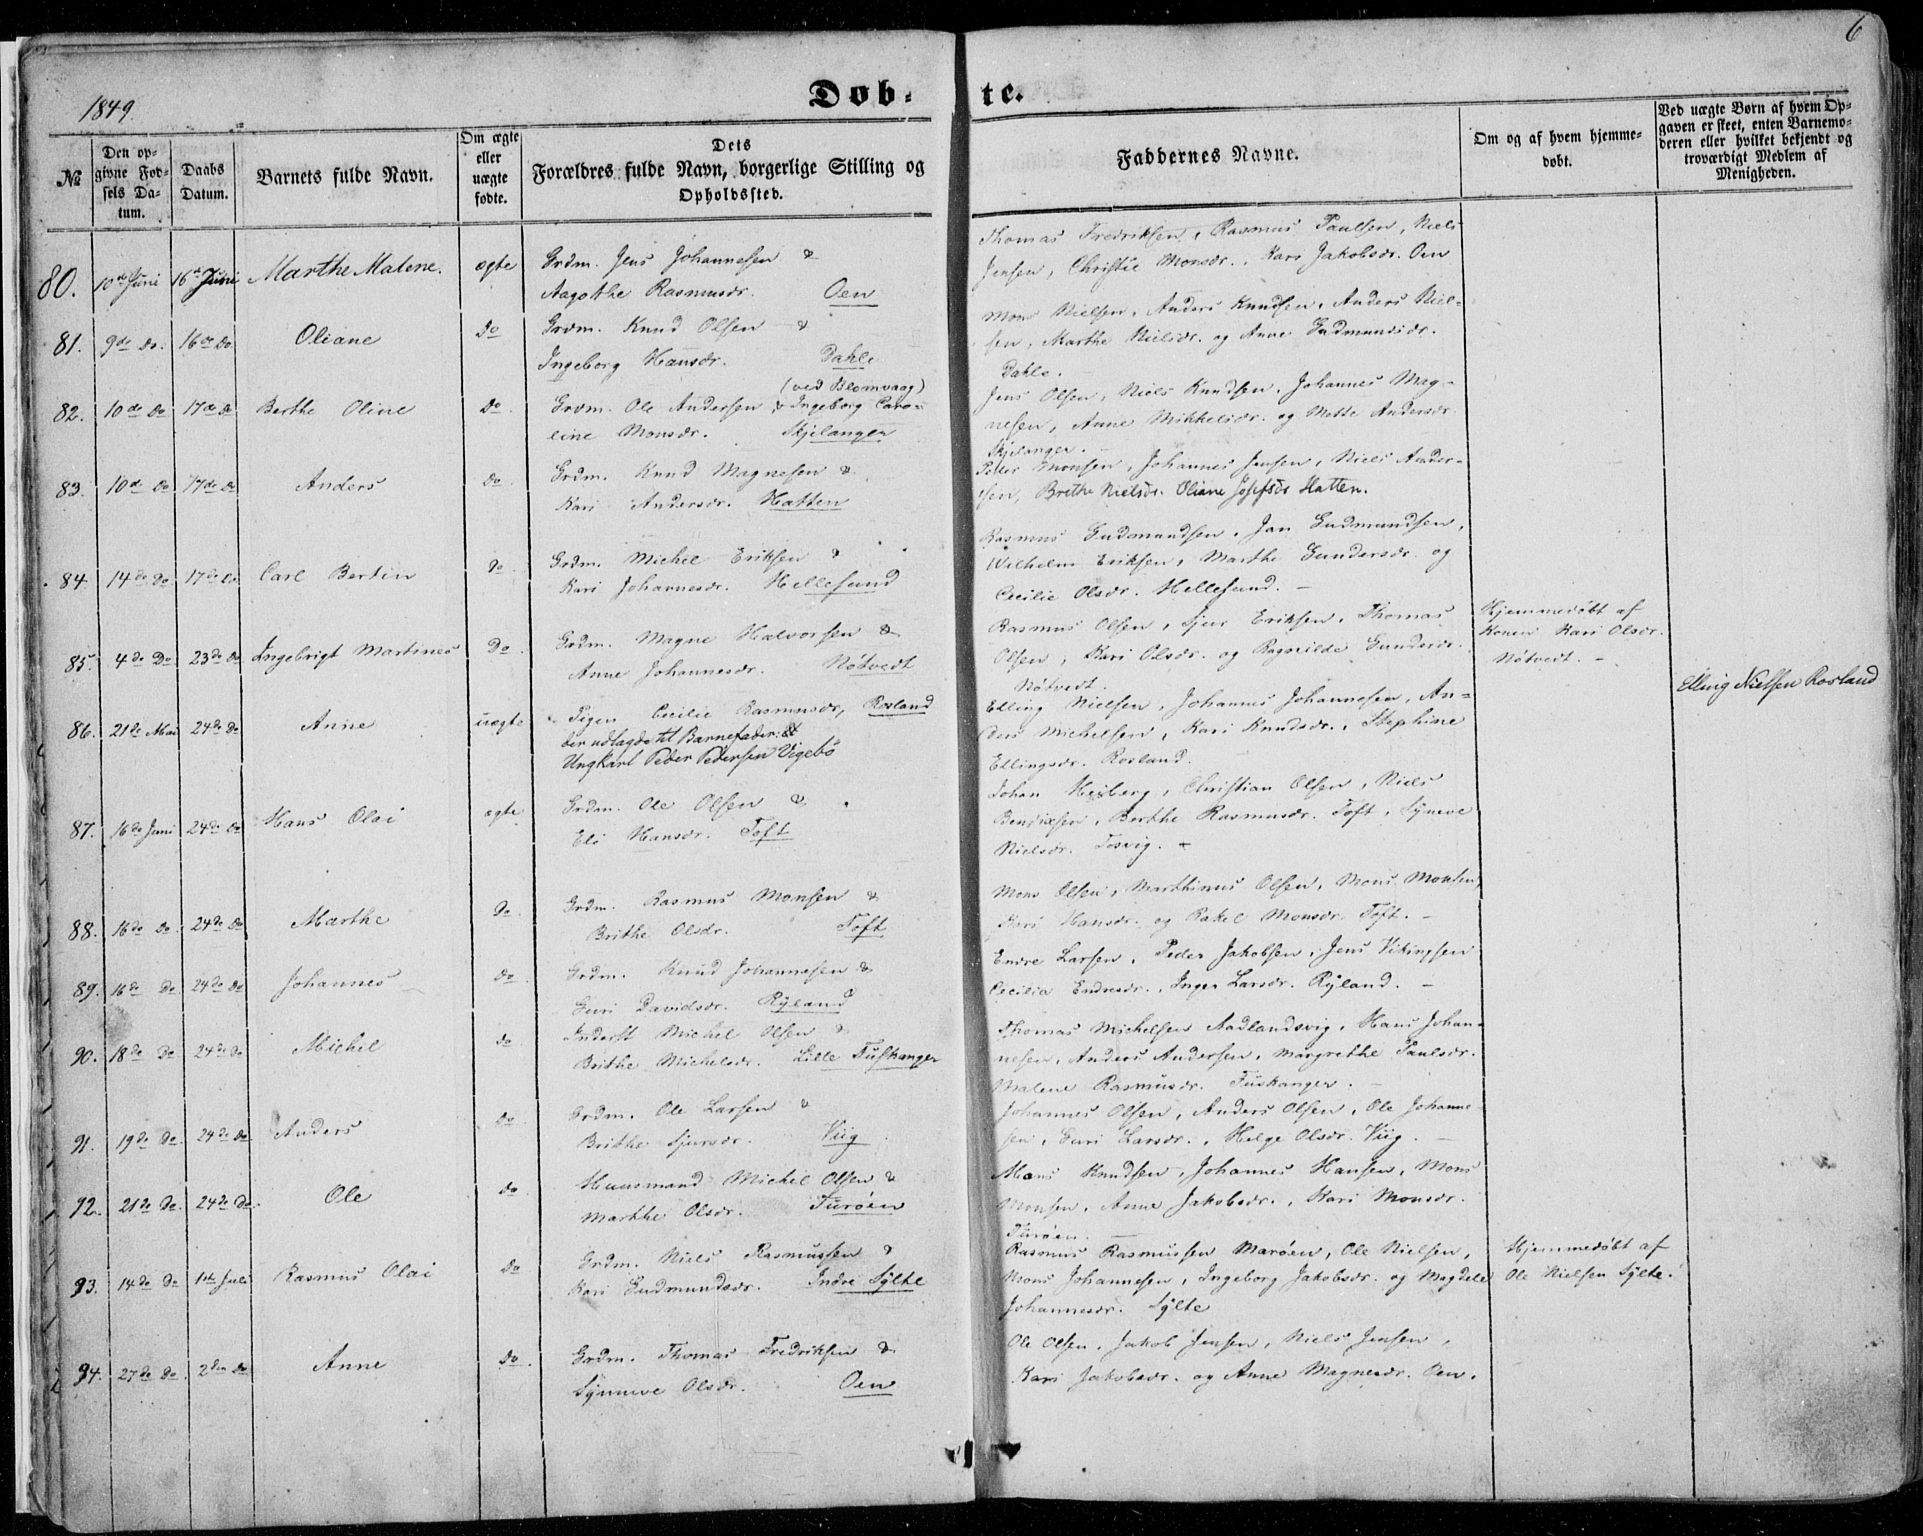 6
1849.
Døb-
te.
№
Den op-
givne Fød-
sels Da-
tum.
Daabs
Datum.
Barnets fulde Navn.
Om ægte
eller
uægte
fødte.
Dets
Forældres fulde Navn, borgerlige Stilling og
Opholdssted.
Faddernes Navne.
Om og af hvem hjemme-
døbt.
Ved uægte Børn af hvem Op-
gaven er skeet, enten Barnemo-
deren eller hvilket bekjendt og
troværdigt Medlem af
Menigheden.
80. 10de Juni 16de Juni Marthe Malene. ægte Grdm. Jens Johannesen &
Aagothe Rasmusdr. Oen
Thomas Fredriksen, Rasmus Paulsen, Niels
Jensen, Christie Monsdr., Kari Jakobsdr. Oen
81. 9de do. 16de do. Oliane Do Grdm. Knud Olsen &
Ingeborg Hansdr. Dahle
Mons Nielsen, Anders Knudsen, Anders Niel-
sen, Marthe Nielsdr. og Anne Gudmundsdr.
Dahle.
82. 10de Do 17de Do Berthe Oline Do. (ved Blomvaag)
Grdm. Ole Andersen & Ingeborg Caro-
line Monsdr. Skjelanger
Jens Olsen, Niels Knudsen, Johannes Mag-
nesen, Anne Mikkelsdr. og Mette Andersdr.
Skjelanger.
83. 10de Do 17de Do Anders Do. Grdm. Knud Magnesen &
Kari Andersdr. Hatten
Peder Monsen, Johannes Jensen, Niels Ander-
sen, Brithe Nielsdr. Oliane Josefsdr Hatten.
84. 14de Do 17de Do Carl Bertin Do. Grdm. Michel Eriksen &
Kari Johannesdr. Hellesund
Rasmus Gudmundsen, Jan Gudmundsen,
Wilhelm Eriksen, Marthe Gundersdr. og
Cecilie Olsdr. Hellesund. -
85. 4de Do 23de Do Ingebrigt Martines Do. Grdm. Magne Halvorsen &
Anne Johannesdr. Nøtvedt
Rasmus Olsen, Sjur Eriksen, Thomas
Olsen, Kari Olsdr. og Ragnilde Gundersdr.
Nøtvedt.
Hjemmedøbt af
Konen Kari Olsdr.
Nøtvedt. -
86. 21de Mai 24de Do Anne uægte Pigen Cecilie Rasmusdr, Rosland
der udlagde til Barnefader:
Ungkarl Peder Pedersen Vigebø
Elling Nielsen, Johannes Johannesen, An-
ders Michelsen, Kari Knudsdr., Stephine
Ellingsdr. Rosland.
Elling Nielsen Rosland
87. 16de Juni 24de Do Hans Olai ægte Grdm. Ole Olsen &
Eli Hansdr. Toft
Johan Heiberg, Christian Olsen, Niels
Bendixsen, Berthe Rasmusdr. Toft, Syneve
Nielsdr. Tosvig.
88. 16de do 24de Do Marthe Do. Grdm. Rasmus Monsen &
Brithe Olsdr. Toft
Mons Olsen, Marthinus Olsen, Mons Monsen,
Kari Hansdr. og Rakel Monsdr. Toft. -
89. 16de Do. 24de Do Johannes Do. Grdm. Knud Johannesen &
Guri Davidsdr. Ryland
Endre Larsen, Peder Jakobsen, Jens Vikingsen
Cecilia Endresdr., Inger Larsdr. Ryland. -
90. 18de Do 24de Do Michel Do Inderst Michel Olsen &
Brithe Michelsdr. Lille Fuskanger
Thomas Michelsen Aadlandsvig, Hans Johan-
nesen, Anders Andersen, Margrethe Paulsdr.
Malene Rasmusdr. Fuskanger. -
91. 19de Do. 24de Do. Anders Do. Grdm. Ole Larsen &
Brithe Sjursdr. Viig
Johannes Olsen, Anders Olsen, Ole Johanne-
sen, Guri Larsdr., Helge Olsdr. Viig. -
92. 21de Do. 24de Do. Ole Do Huusmand Michel Olsen &
Marthe Olsdr. Turøen
Hans Knudsen, Johannes Hansen, Mons
Monsen, Anne Jakobsdr., Kari Monsdr.
Turøen. -
93. 14de Do 1ste Juli Rasmus Olai Do Grdm. Niels Rasmussen &
Kari Gudmundsdr. Indre Sylte
Rasmus Rasmussen Marøen, Ole Nielsen,
Mons Johannesen, Ingeborg Jakobsdr. og Magdele
Johannesdr. Sylte
Hjemmedøbt af
Ole Nielsen Sylte.
94. 27de Do. 2den Do Anne Do. Grdm. Thomas Fredriksen &
Synneve Olsdr. Oen
Ole Olsen, Jakob Jensen, Niels Jensen,
Kari Jakobsdr. og Anne Magnesdr. Oen.